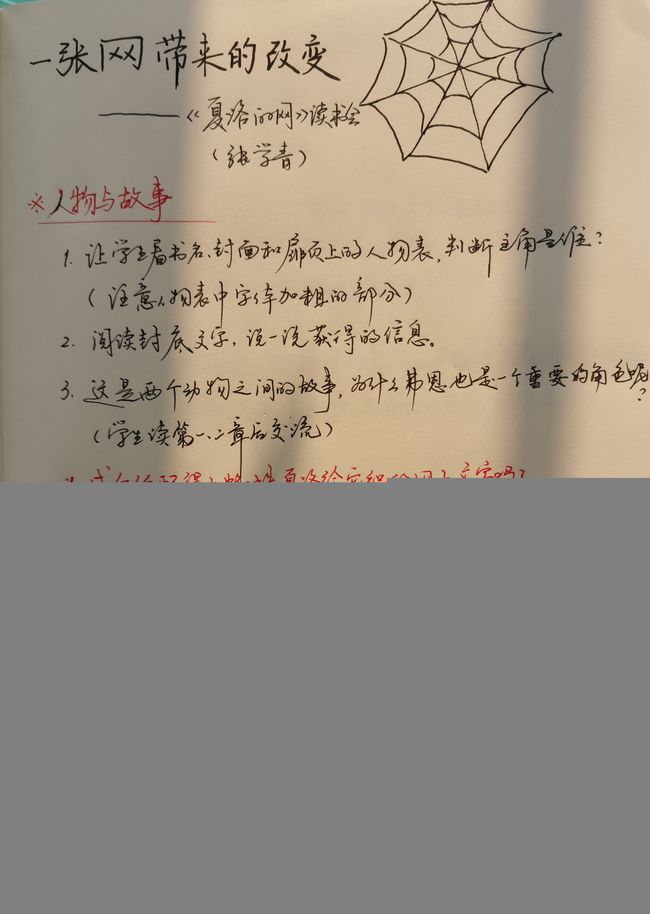 一张网带来的改变
——《夏洛的网》读书会
（张学青）
※人物与故事
1. 让学生看书名、封面和扉页上的人物表，判断主角是谁？
（注意人物表中字体加粗的部分）
2. 阅读封底文字，说一说获得的信息。
3. 这是两个动物之间的故事，为什么弗恩也是一个重要的角色呢？
（学生读第一、二章后交流）